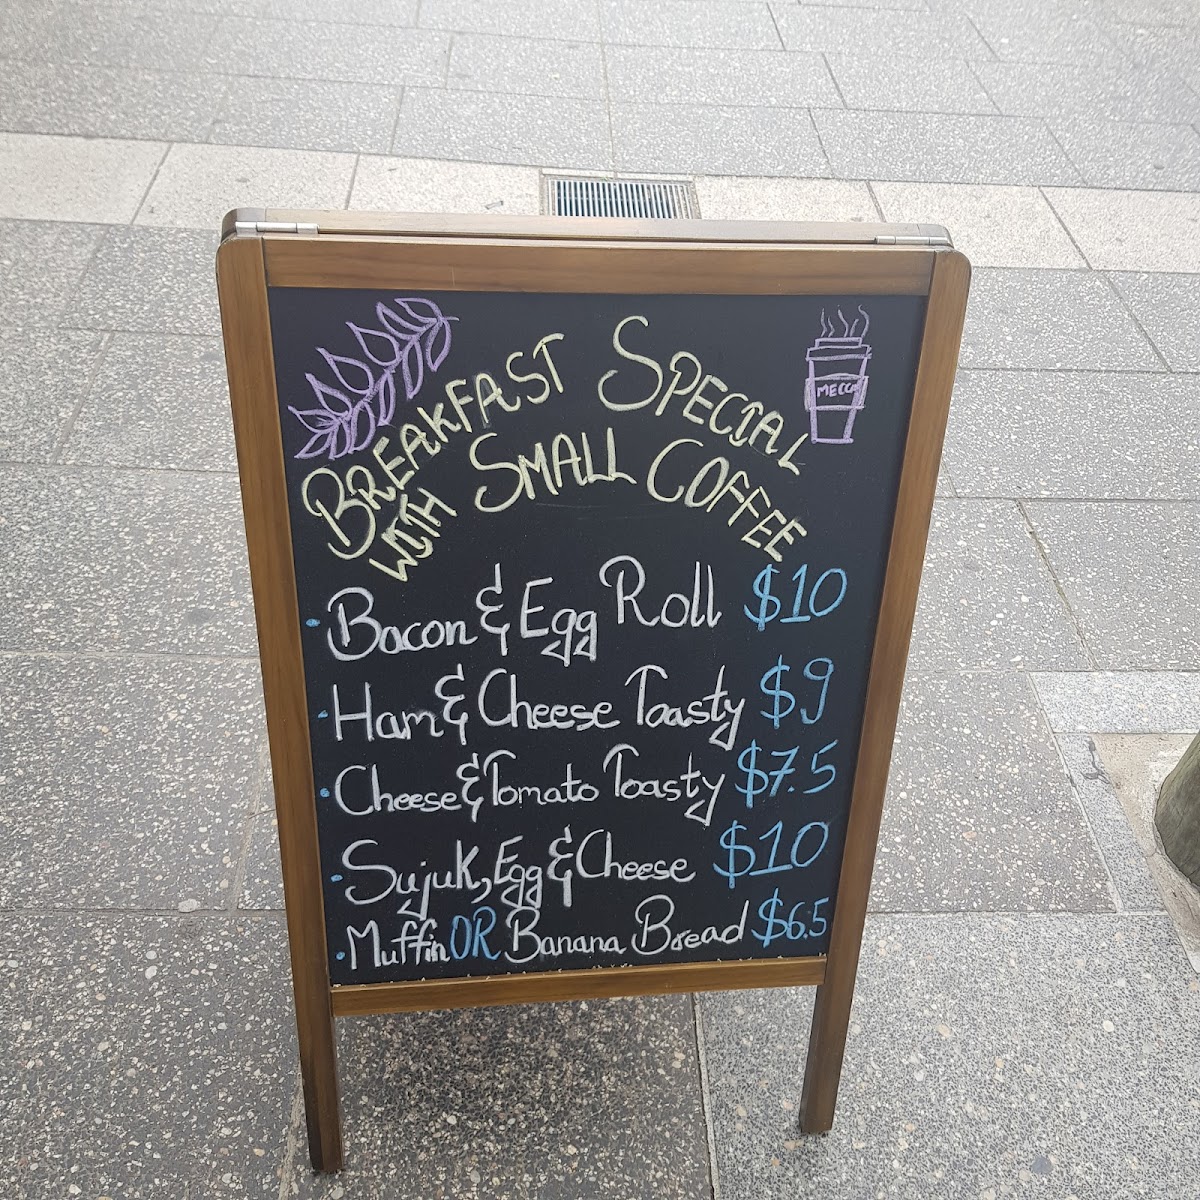 BREAKFAST SPECIAL
MECCA
WITH SMALL COFFEE
Bacon & Egg Roll $10
Ham & Cheese Toasty $9
Cheese & Tomato Toasty $7.5
Sujuk, Egg & Cheese $10
Muffin OR Banana Bread $6.5